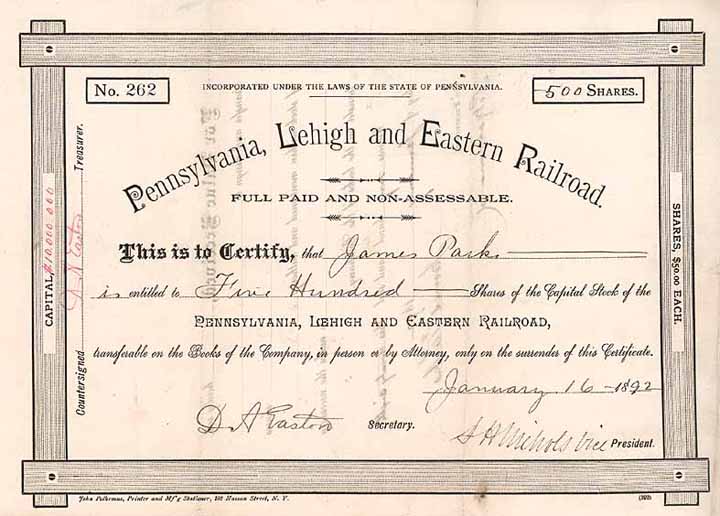 No. 262
INCORPORATED UNDER THE LAWS OF THE STATE OF PENNSYLVANIA.
500 SHARES.
Pennsylvania, Lehigh and Eastern Railroad.
FULL PAID AND NON-ASSESSABLE.
This is to Certify, that James Park
is entitled to Five Hundred Shares of the Capital Stock of the
PENNSYLVANIA, LEHIGH AND EASTERN RAILROAD,
transferable on the Books of the Company, in person or by Attorney, only on the surrender of this Certificate.
January 16 1892
D A Easton Secretary.
S H Nichols Vice President.
CAPITAL, $10,000,000
Countersigned D A Easton Treasurer.
SHARES, $50.00 EACH.
John Polhemus, Printer and Mf'g Stationer, 102 Nassau Street, N. Y.